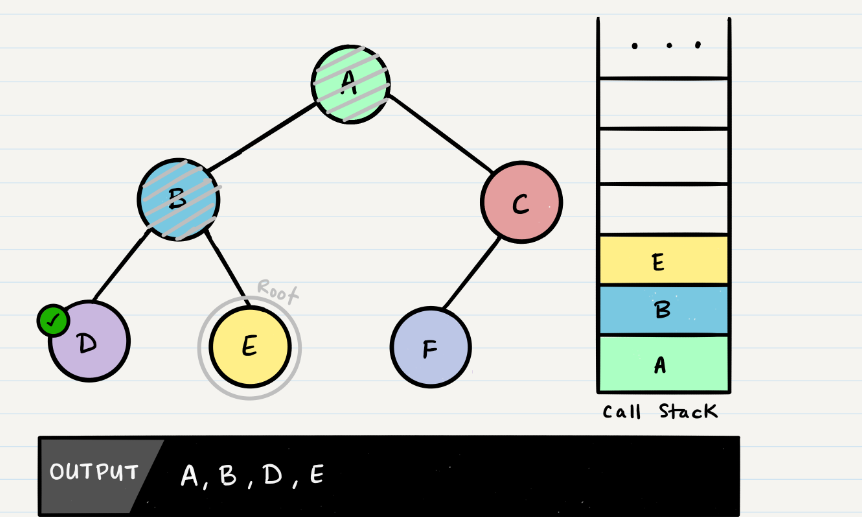 A
B
C
Root
D
E
F
E
B
A
Call Stack
OUTPUT A, B, D, E